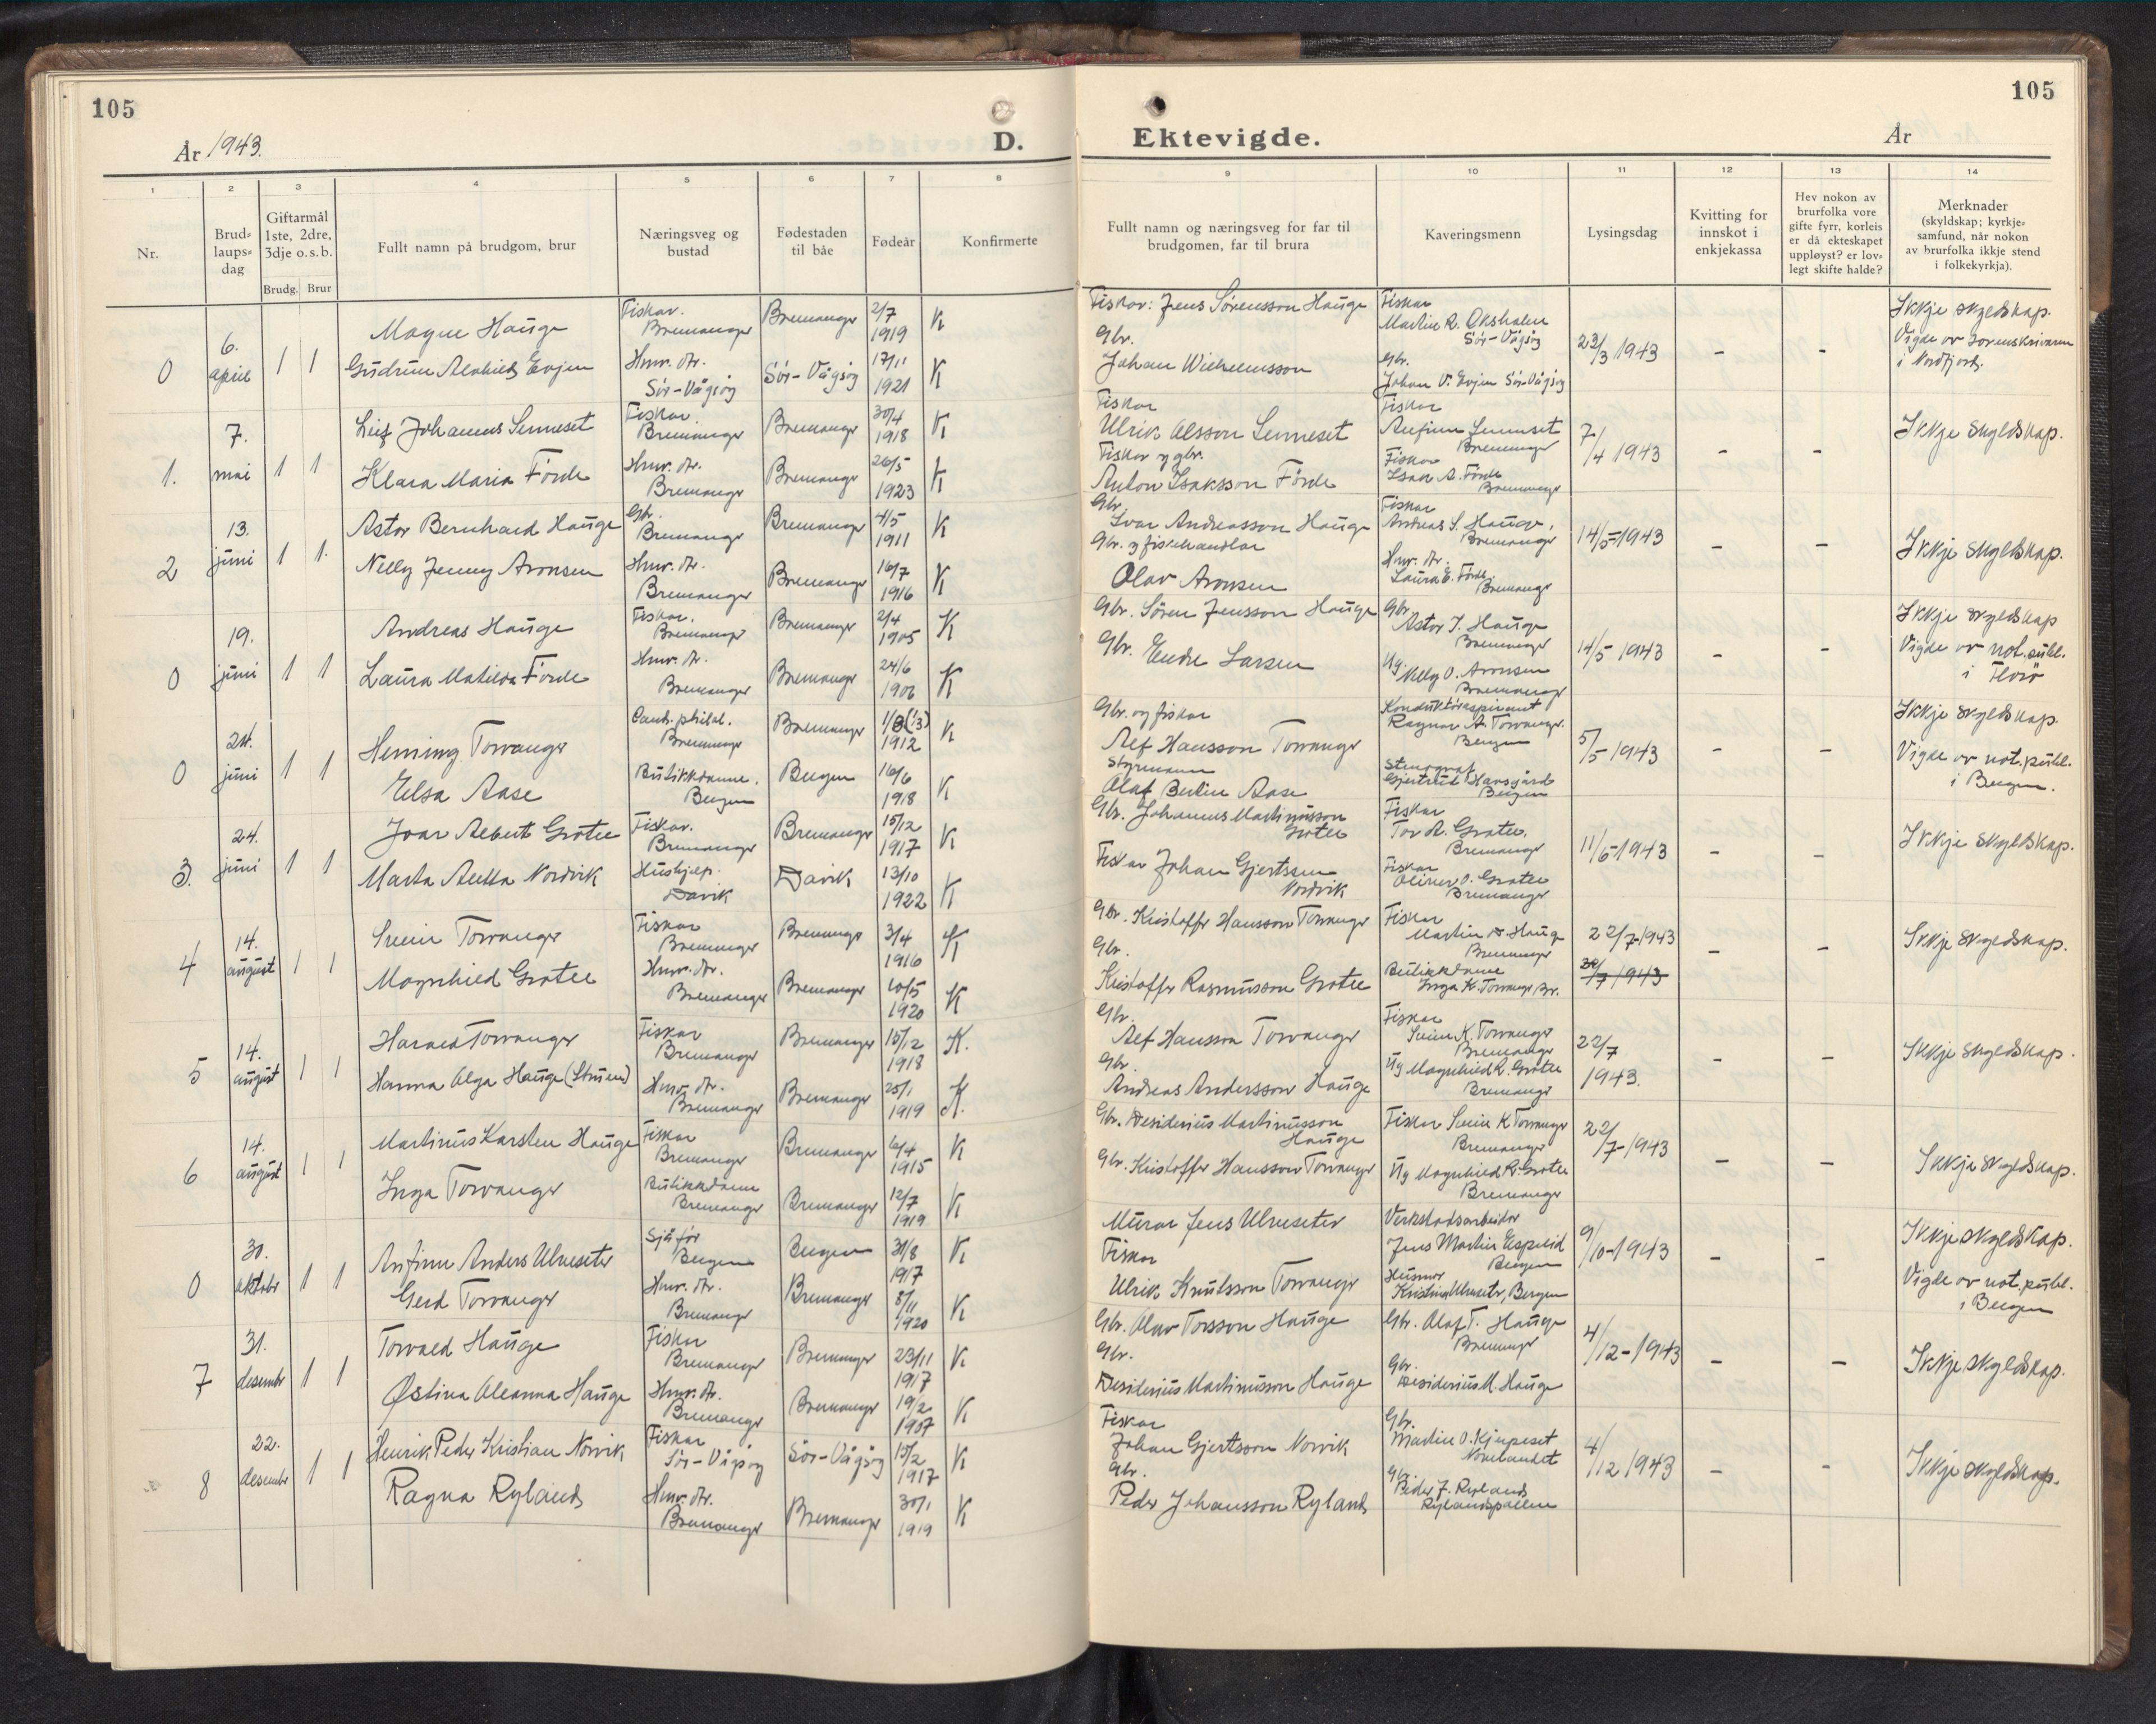 105
År 1943.
D.
1 2 3 4 5 6 7 8
Nr.
Brud-
laups-
dag
Giftarmål
1ste, 2dre,
3dje o.s.b.
Brudg. Brur
Fullt namn på brudgom, brur
Næringsveg og
bustad
Fødestaden
til båe
Fødeår
Konfirmerte
105
Ektevigde.
År
9 10 11 12 13 14
Fullt namn og næringsveg for far til
brudgomen, far til brura
Kaveringsmenn
Lysingsdag
Kvitting for
innskot i
enkjekassa
Hev nokon av
brurfolka vore
gifte fyrr, korleis
er då ekteskapet
uppløyst? er lov-
legt skifte halde?
Merknader
(skyldskap; kyrkje-
samfund, når nokon
av brurfolka ikkje stend
i folkekyrkja).
0
6.
april
1 1
Magne Hauge
Fiskar.
Bremanger
Bremanger
2/7
1919
K
Gudrun Evjen
Husv. dtr.
Sør-Vågsøy
Sør-Vågsøy
17/11
1921
K
Fiskar: Jens Sørensson Hauge
Gbr.
Johan Wilhelmsson
Fiskar
Martin R.
Sør-Vågsøy
Gbr.
Johan V. Evjen Sør-Vågsøy
23/3 1943
- -
Ikkje skyldskap.
Vigde av sorenskrivaren
i Nordfjord.
1.
7.
mai
1 1
Leif Johannes Senneset
Fiskar.
Bremanger
Bremanger
30/4
1918
K
Klara Maria Førde
Husv. dtr.
Bremanger
Bremanger
26/5
1923
K
Fiskar
Ulrik Olsson Senneset
Fiskar og gbr.
Anton Isaksson Førde
Fiskar
Anfinn Senneset
Bremanger
Fiskar
Isak A. Førde
Bremanger
7/4 1943
- -
Ikkje skyldskap.
2
13.
juni
1 1
Astor Bernhard Hauge
Gbr.
Bremanger
Bremanger
4/5
1911
K
Nelly Jenny Aronsen
Husv. dtr.
Bremanger
Bremanger
16/7
1916
K
Gbr.
Ivar Andreasson Hauge
Gbr. og fiskehandlar
Olav Aronsen
Fiskar
Andreas S. Hauge,
Bremanger
Husv. dtr.
Laura E. Førde,
Bremanger
14/5-1943
- -
Ikkje skyldskap.
0
19.
juni
1 1
Andreas Hauge
Fiskar.
Bremanger
Bremanger
2/4
1905
K
Laura Matilda Førde
Husv. dtr.
Bremanger
Bremanger
24/6
1906
K
Gbr. Søren Jensson Hauge
Gbr. Endre Larsen
Gbr.
Astor I. Hauge
Bremanger
Ug. Nelly O. Aronsen
Bremanger
14/5 1943
- -
Ikkje skyldskap
Vigde av not. publ.
i Florø
0
24.
juni
1 1
Henning Torvanger
Cand. philol.
Bremanger
Bremanger
1912
K
Elsa Aase
Butikkdame.
Bergen
Bergen
16/6
1918
K
Gbr. og fiskar
Alf Hansson Torvanger
Styrmann
Olaf Berlin Aase
Konduktøraspirant
Ragnar A. Torvanger.
Bergen
Stenograf
Gjertrud
Bergen
5/5-1943
- -
Ikkje skyldskap.
Vigde av not. publ.
i Bergen.
3.
24.
juni
1 1
Ivar Albert Grotle
Fiskar.
Bremanger
Bremanger
15/12
1917
K
Marta Nordvik
Hushjelp.
Davik
Davik
13/10
1922
K
Gbr. Johannes Martinusson
Grotle
Fiskar Johan Gjertssen
Nordvik
Fiskar
Tor A. Grotle.
Bremanger
Fiskar
Oliver O. Grotle
Bremanger
11/6-1943
- -
Ikkje skyldskap.
4
14.
august
1 1
Svein Torvanger
Fiskar
Bremanger
Bremanger
3/4
1916
K
Magnhild Grotle
Husv. dtr.
Bremanger
Bremanger
10/5
1920
K
Gbr. Kristoffer Hansson Torvanger
Gbr.
Kristoffer Rasmusson Grotle
Fiskar
Martin Hauge
Bremanger
Butikkdame
Inga K. Torvanger Br.
22/7-1943
- -
Ikkje skyldskap.
5
14.
august
1 1
Harald Torvanger
Fiskar
Bremanger
Bremanger
15/12
1918
K.
Hanna Olga Hauge
Husv. dtr.
Bremanger
Bremanger
25/1
1919
K.
Gbr.
Alf Hansson Torvanger
Gbr.
Andreas Andersson Hauge
Fiskar
Svein K. Torvanger
Bremanger
Ug Magnhild K. Grotle
Bremanger
22/7
1943.
- -
Ikkje skyldskap.
6
14.
august
1 1
Martinus Karsten Hauge
Fiskar
Bremanger
Bremanger
6/4
1915
K
Inga Torvanger
Butikkdame
Bremanger
Bremanger
12/7
1919
K
Gbr. Desiderius Martinusson
Hauge
Gbr. Kristoffer Hansson Torvanger
Fiskar Svein K Torvanger
Bremanger
Ug Magnhild K. Grotle
Bremanger
22/7-1943
- -
Ikkje skyldskap.
0
30.
oktober
1 1
Anfinn Anders Ulveseter
Sjåfør
Bergen
Bergen
31/8
1917
K
Gerd Torvanger
Husv. dtr.
Bremanger
Bremanger
8/11
1920
K
Murar Jens Ulveseter
Fiskar
Ulrik Knutsson Torvanger
Verkstadsarbeidar
Jens Martin Espelid
Bergen
Husmor
Kristina Ulveseter, Bergen
9/10-1943
- -
Ikkje skyldskap.
Vigde av not. publ.
i Bergen
7
31.
desember
1 1
Torvald Hauge
Fiskar
Bremanger
Bremanger
23/11
1917
K
Østina Oleanna Hauge
Husv. dtr.
Bremanger
Bremanger
19/2
1907
K
Gbr. Olav Torsson Hauge
Gbr.
Desiderius Martinusson Hauge
Gbr. Olaf T. Hauge
Bremanger
Gbr.
Desiderius M. Hauge
4/12-1943
- -
Ikkje skyldskap.
8
22.
desember
1 1
Henrik Peder Kristian Norvik
Fiskar
Sør-Vågsøy
Sør-Vågsøy
15/2
1917
K
Ragna Ryland
Husv. dtr.
Bremanger
Bremanger
30/1
1919
K
Fiskar
Johan Gjertsson Norvik
Gbr.
Peder Johansson Ryland
Gbr.
Martin O.
Gbr.
Peder J. Ryland
Rylandspollen
4/12 1943
- -
Ikkje skyldskap.